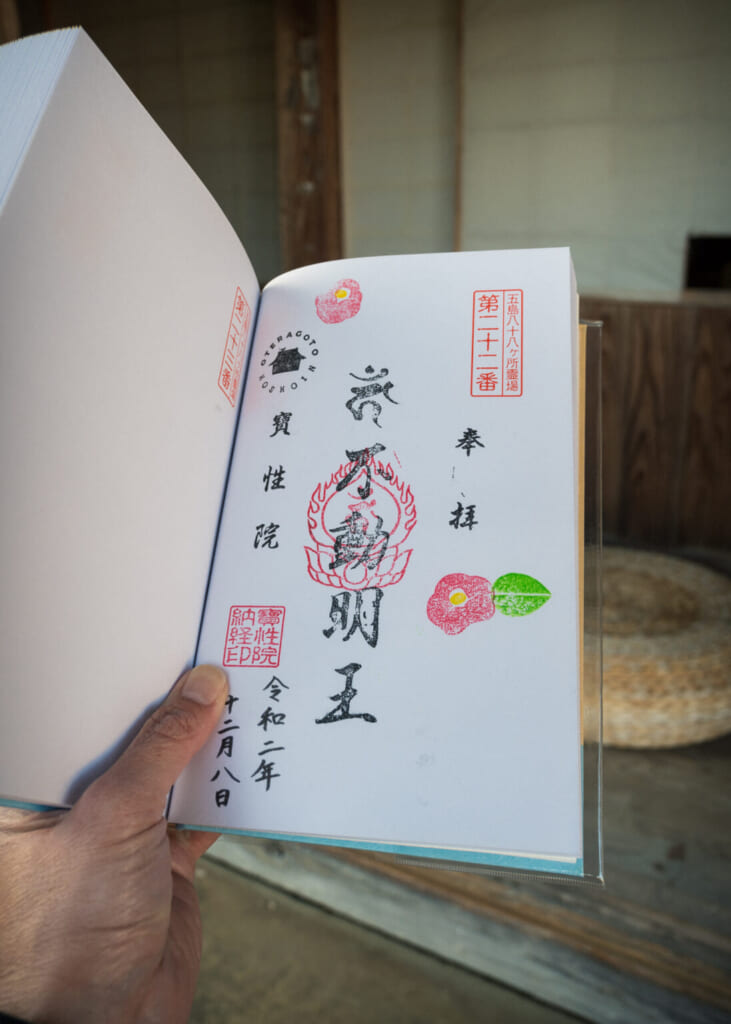 五島八十八ヶ所霊場
第二十二番
奉拝
不動明王
OTERAGOTO
寳性院
寳性院
納経印
令和二年
十二月八日
第二十三番